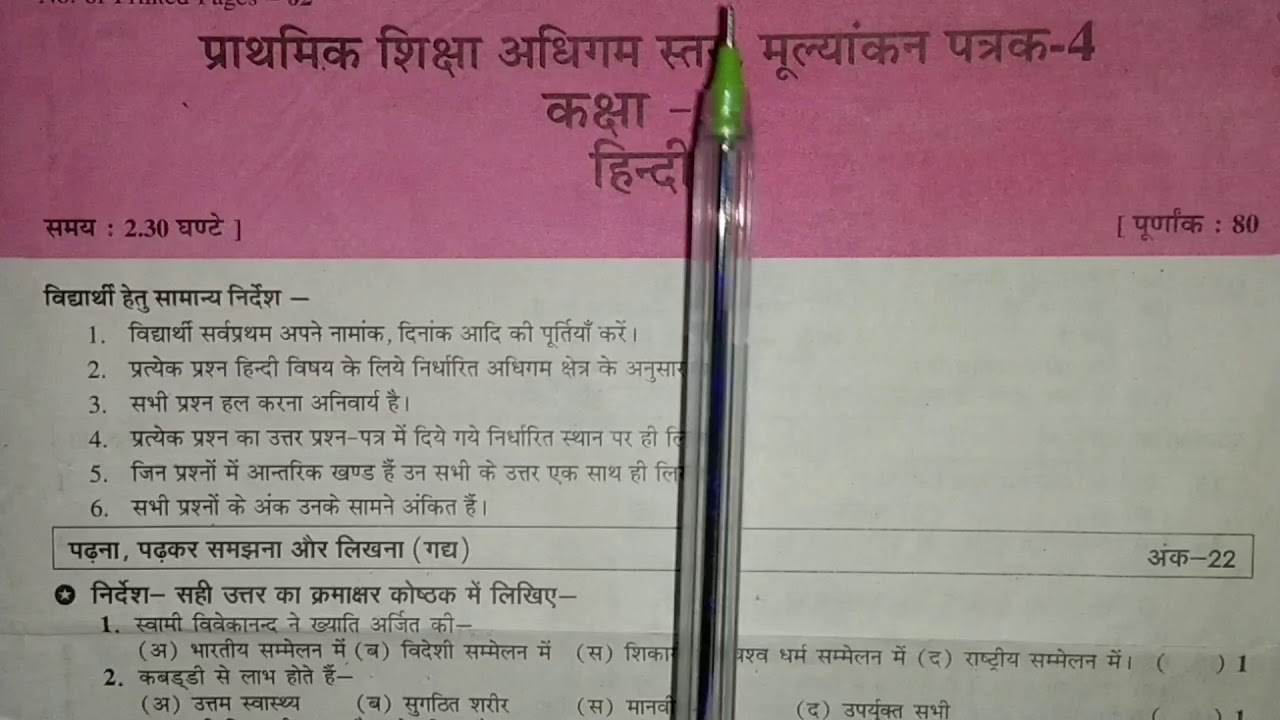 No. of Printed Pages – 02
प्राथमिक शिक्षा अधिगम मूल्यांकन पत्रक-4
कक्षा –
हिन्दी
समय : 2.30 घण्टे ] [ पूर्णांक : 80
विद्यार्थी हेतु सामान्य निर्देश –
1. विद्यार्थी सर्वप्रथम अपने नामांक, दिनांक आदि की पूर्तियाँ करें।
2. प्रत्येक प्रश्न हिन्दी विषय के लिये निर्धारित अधिगम क्षेत्र के अनुसार
3. सभी प्रश्न हल करना अनिवार्य है।
4. प्रत्येक प्रश्न का उत्तर प्रश्न-पत्र में दिये गये निर्धारित स्थान पर ही
5. जिन प्रश्नों में आन्तरिक खण्ड हैं उन सभी के उत्तर एक साथ ही
6. सभी प्रश्नों के अंक उनके सामने अंकित हैं।
पढ़ना, पढ़कर समझना और लिखना (गद्य) अंक–22
निर्देश– सही उत्तर का क्रमाक्षर कोष्ठक में लिखिए–
1. स्वामी विवेकानन्द ने ख्याति अर्जित की–
(अ) भारतीय सम्मेलन में (ब) विदेशी सम्मेलन में (स) धर्म सम्मेलन में (द) राष्ट्रीय सम्मेलन में। ( ) 1
2. कबड्डी से लाभ होते हैं–
(अ) उत्तम स्वास्थ्य (ब) सुगठित शरीर (स) (द) उपर्युक्त सभी ( ) 1